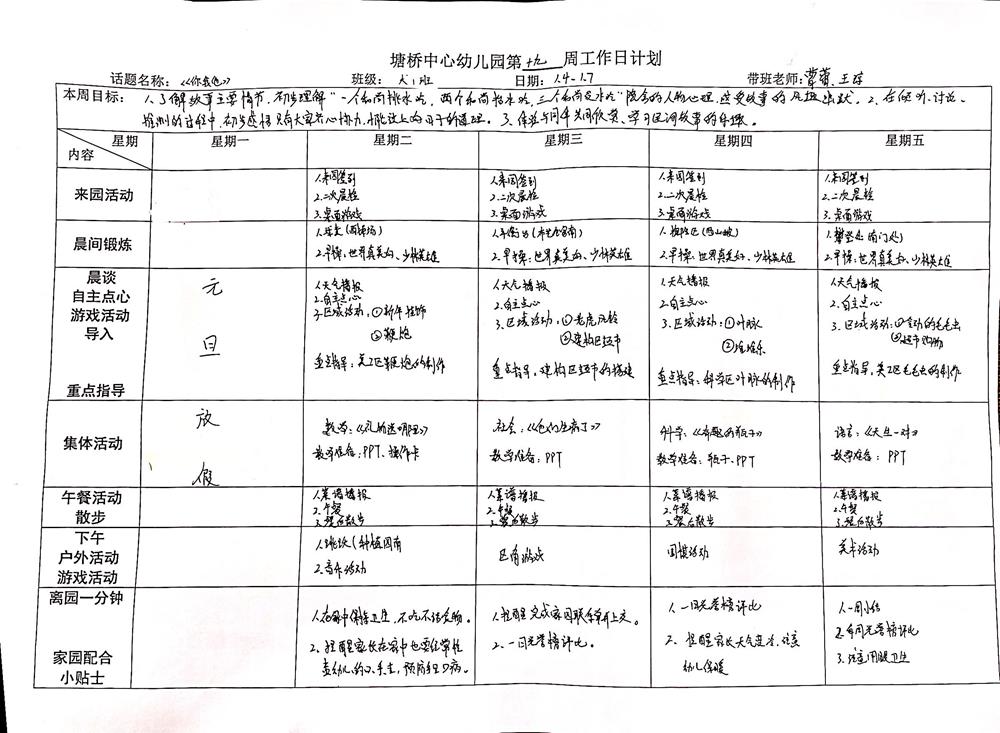 塘桥中心幼儿园第十九周工作日计划
话题名称：《你我他》 班级：大1班 日期：1.4-1.7 带班老师：王
本周目标：1.了解故事主要情节，初步理解“一个和尚挑水吃，两个和尚抬水吃，三个和尚没水吃”隐含的人物心理，感受故事的 幽默。2.在倾听、讨论、
推测的过程中，初步感悟只有大家齐心协力，才能 的道理。3.体验与同伴共同 、学习 故事的乐趣。
星期 内容 星期一 星期二 星期三 星期四 星期五
来园活动
1.来园签到 1.来园签到 1.来园签到 1.来园签到
2.二次晨检 2.二次晨检 2.二次晨检 2.二次晨检
3.桌面游戏 3.桌面游戏 3.桌面游戏 3.桌面游戏
晨间锻炼
2.早操：世界真美好、少林英雄 2.早操：世界真美好、少林英雄 2.早操：世界真美好、少林英雄 2.早操：世界真美好、少林英雄
晨谈
自主点心
游戏活动
导入
重点指导
元
旦
放
假
1.天气播报 1.天气播报 1.天气播报 1.天气播报
2.自主点心 2.自主点心 2.自主点心 2.自主点心
3.区域活动：①新年 3.区域活动：①老虎 3.区域活动：①叶脉 3.区域活动：①会动的毛毛虫
②鞭炮 ②建构区超市 ② ②超市购物
重点指导：美工区鞭炮的制作 重点指导：建构区超市的搭建 重点指导：科学区叶脉的制作 重点指导：美工区毛毛虫的制作
集体活动
数学：《礼物送哪里》 社会：《他们生病了》 科学：《有趣的瓶子》 语言：《天生一对》
教学准备：PPT、操作卡 教学准备：PPT 教学准备：瓶子、PPT 教学准备：PPT
午餐活动
散步
1.菜谱播报 1.菜谱播报 1.菜谱播报 1.菜谱播报
2.午餐 2.午餐 2.午餐 2.午餐
3.餐后散步 3.餐后散步 3.餐后散步 3.餐后散步
下午
户外活动
游戏活动
2.音乐活动 区角游戏 活动 美术活动
离园一分钟
家园配合
小贴士
1.在家中保持卫生，不吃不洁食物。 1.提醒完成家园联系单并上交。 1.一日光荣榜评比 1.一周小结
2.提醒家长在家中也要经常检查幼儿的 卫生，预防手足口病。 2.一日光荣榜评比。 2.提醒家长天气变冷，注意幼儿保暖 2.每周光荣榜评比
3.注意用眼卫生